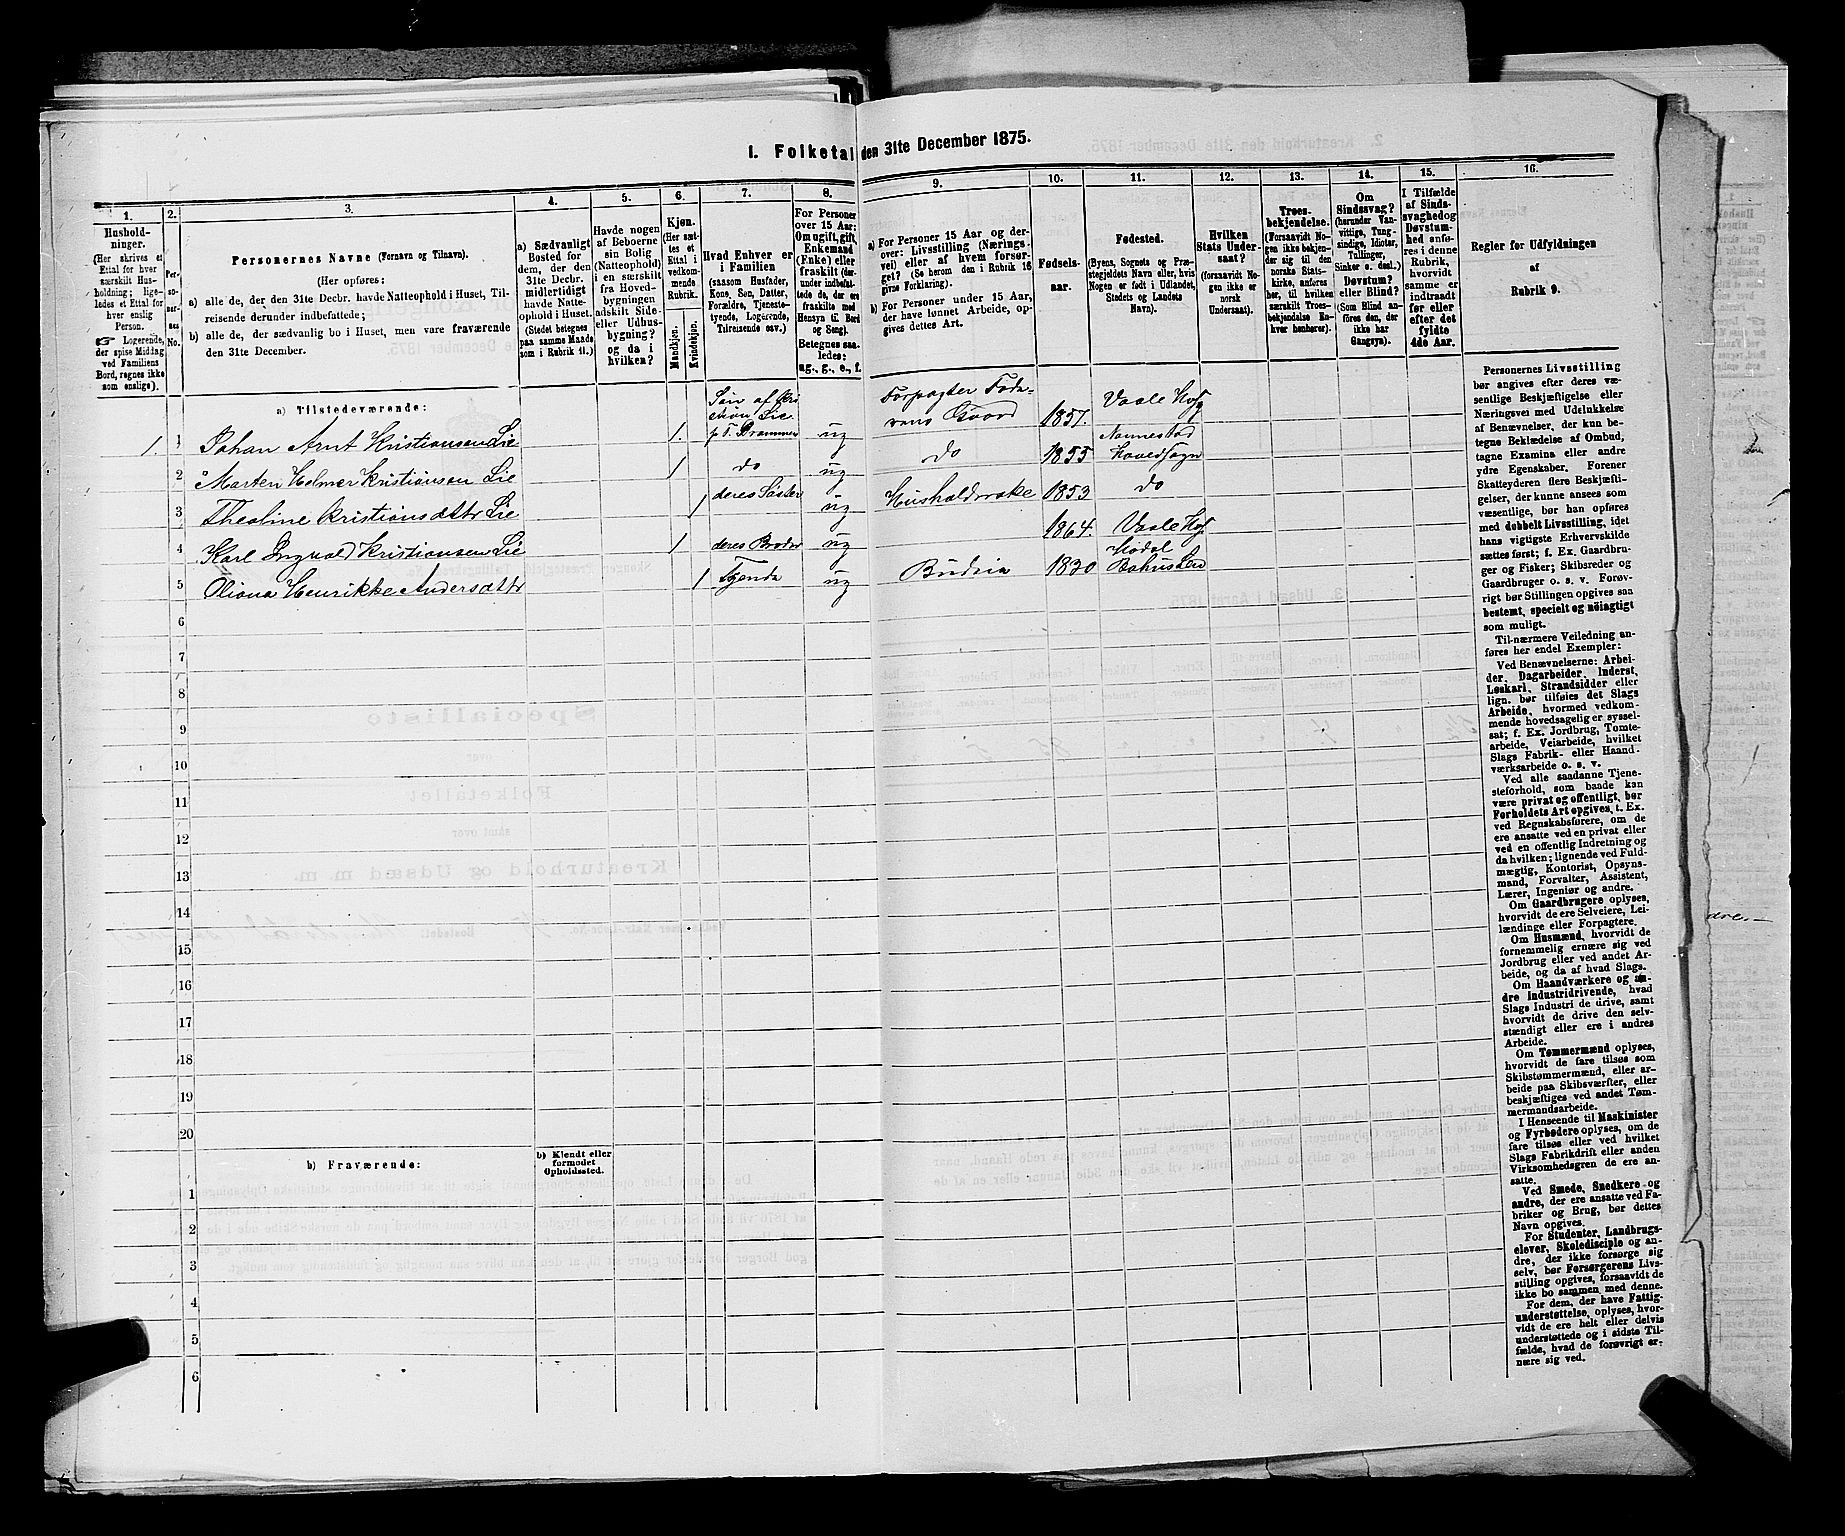 I. Folketal den 31te December 1875.
1.
Hushold-
ninger.
(Her skrives et
Ettal for hver
særskilt Hus-
holdning; lige-
ledes et Ettal
for hver enslig
Person.
☛ Logerende,
der spise Middag
ved Familiens
Bord, regnes ikke
som enslige).
2.
Per-
so-
ner-
nes
No.
3.
Personernes Navne (Fornavn og Tilnavn).
(Her opføres:
a) alle de, der den 31te Decbr. havde Natteophold i Huset, Til-
reisende derunder indbefattede;
b) alle de, der sædvanlig bo i Huset, men vare fraværende
den 31te December.
4.
a) Sædvanligt
Bosted for
dem, der den
31te Decbr.
midlertidigt
havde Natte-
ophold i Huset.
(Stedet betegnes
paa samme Maade
som i Rubrik 11.)
5.
Havde nogen
af Beboerne
sin Bolig
(Natteophold)
i en særskilt
fra Hoved-
bygningen
adskilt Side-
eller Udhus-
bygning?
og da i
hvilken?
6.
Kjøn.
(Her sæt-
tes et
Ettal i
vedkom-
mende
Rubrik.
Mandkjøn.
Kvindekjøn.
7.
Hvad Enhver er
i Familien
(saasom Husfader,
Kone, Søn, Datter,
Forældre, Tjeneste-
tyende, Logerende,
Tilreisende osv.)
8.
For Personer
over 15 Aar:
Om ugift, gift,
Enkemand
(Enke) eller
fraskilt (der-
under indbefat-
tede de, der ere
fraskilte med
Hensyn til Bord
og Seng).
Betegnes saa-
ledes:
ug., g., e., f.
9.
a) For Personer 15 Aar og der-
over: Livsstilling (Nærings-
vei) eller af hvem forsør-
get? (Se herom den i Rubrik 16
givne Forklaring).
b) For Personer under 15 Aar,
der have lønnet Arbeide, op-
gives dettes Art.
10.
Fødsels-
aar.
11.
Fødested.
(Byens, Sognets og Præ-
stegjeldets Navn eller, hvis
Nogen er født i Udlandet,
Stedets og Landets
Navn).
12.
Hvilken
Stats Under-
saat?
(forsaavidt No-
gen ikke er
norsk
Undersaat).
13.
Troes-
bekjendelse.
(Forsaavidt No-
gen ikke bekjen-
der sig til den
norske Stats-
kirke, anføres
her, til hvilken
særskilt Troes-
bekjendelse En-
hver henhører).
14.
Om
Sindssvag?
(herunder Van-
vittige, Tung-
sindige, Idioter,
Tullinger,
Sinker o. desl.)
Døvstum?
eller Blind?
(Som Blind an-
føres den, der
ikke har
Gangsyn).
15.
I Tilfælde
af Sinds-
svaghed og
Døvstum-
hed anfø-
res i denne
Rubrik,
hvorvidt
samme er
indtraadt
før eller
efter det
fyldte
4de Aar.
16.
Regler for Udfyldningen
af
Rubrik 9.
a) Tilstedeværende:
1. 1 Johan Arnt Kristiansen Lie 1. Søn af Kri
stian Lie
p T. Drammen ug Forpagter Fade-
rens Gaard 1857. Vaale Hsg
2 Marten Helmer Kristiansen Lie 1 do ug do 1855 Nannestad
Hovedsogn
3 Theoline Kristiansdttr Lie 1 deres Søster ug Husholderske 1853 do
4 Karl Ingvald Kristiansen Lie 1 deres Broder ug 1864. Vaale Hsg
5 Oliana Henrikke Andersdttr 1 Tjenda ug Budeia 1830
6
7
8
9
10
11
12
13
14
15
16
17
18
19
20
b) Fraværende:
b) Kjendt eller
formodet
Opholdssted.
1
2
3
4
5
6
Personernes Livsstilling
bør angives efter deres væ-
sentlige Beskjæftigelse eller
Næringsvei med Udelukkelse
af Benævnelser, der kun be-
tegne Beklædelse af Ombud,
tagne Examina eller andre
ydre Egenskaber. Forener
Skatteyderen flere Beskjæfti-
gelser, der kunne ansees som
væsentlige, bør han opføres
med dobbelt Livsstilling, idet
hans vigtigste Erhvervskilde
sættes først; f. Ex. Gaardbru-
ger og Fisker; Skibsreder og
Gaardbruger o. s. v. Forøv-
rigt bør Stillingen opgives saa
bestemt, specielt og nöiagtigt
som muligt.
Til nærmere Veiledning an-
føres her endel Exempler:
Ved Benævnelserne: Arbei-
der, Dagarbeider, Inderst,
Løskarl, Strandsidder eller
lign. bør tilføies det Slags
Arbeide, hvormed vedkom-
mende hovedsagelig er syssel-
sat; f. Ex. Jordbrug, Tomte-
arbeide, Veiarbeide, hvilket
Slags Fabrik- eller Haand-
værksarbeide o. s. v.
Ved alle saadanne Tjene-
steforhold, som baade kan
være privat og offentligt, bør
Forholdets Art opgives, t. Ex.
ved Regnskabsførere, om de
ere ansatte ved en privat eller
ved en offentlig Indretning og
da hvilken; lignende ved Fuld-
mægtig, Kontorist, Opsyns-
mand, Forvalter, Assistent,
Lærer, Ingeniør og andre.
Om Gaardbrugere oplyses,
hvorvidt de ere Selveiere, Lei-
lændinge eller Forpagtere.
Om Husmænd, hvorvidt de
fornemmelig ernære sig ved
Jordbrug eller ved andet Ar-
beide, og da af hvad Slags.
Om Haandværkere og an-
dre Industridrivende, hvad
Slags Industri de drive, samt
hvorvidt de drive den selv-
stændigt eller ere i andres
Arbeide.
Om Tømmermænd oplyses,
hvorvidt de fare tilsøs som
Skibstømmermænd, eller ar-
beide paa Skibsværfter, eller
beskjæftiges ved andet Tøm-
mermandsarbeide.
I Henseende til Maskinister
og Fyrbødere oplyses, om de
fare tilsøs eller ved hvilket
Slags Fabrikdrift eller anden
Virksomhedsgren de ere an-
satte.
Ved Smede, Snedkere og
andre, der ere ansatte ved Fa-
briker og Brug, bør dettes
Navn opgives.
For Studenter, Landbrugs-
elever, Skoledisciple og an-
dre, der ikke forsørge sig
selv, bør Forsørgerens Livs-
stilling opgives, forsaavidt de
ikke bo sammen med denne.
For dem, der have Fattig-
understøttelse, oplyses, hvor-
vidt de ere helt eller delvis
understøttede og i sidste Til-
fælde, hvad de forøvrigt er-
nære sig ved.